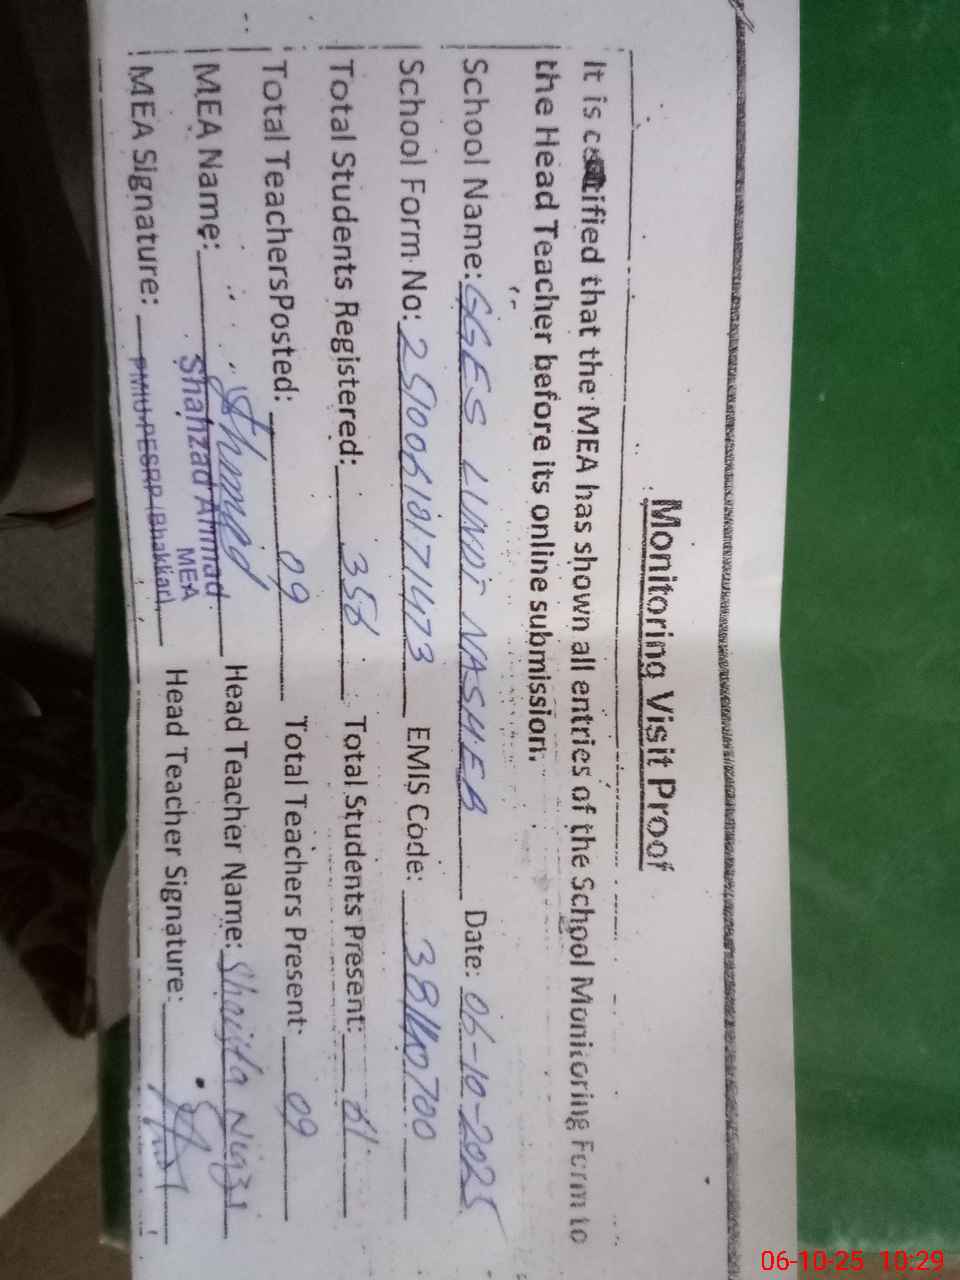 Monitoring Visit Proof
It is certified that the MEA has shown all entries of the School Monitoring Form to
the Head Teacher before its online submission.
School Name: GGES LUNDI NASHEB Date: 06-10-2025
School Form No: EMIS Code:
Total Students Registered: 356 Total Students Present: 61
Total TeachersPosted: 09 Total Teachers Present: 09
MEA Name: Shahzad Ahmad Head Teacher Name: Shaista Niazi
MEA
MEA Signature: PMIU-PESRP (Bhakkar) Head Teacher Signature:
06-10-25 10:29